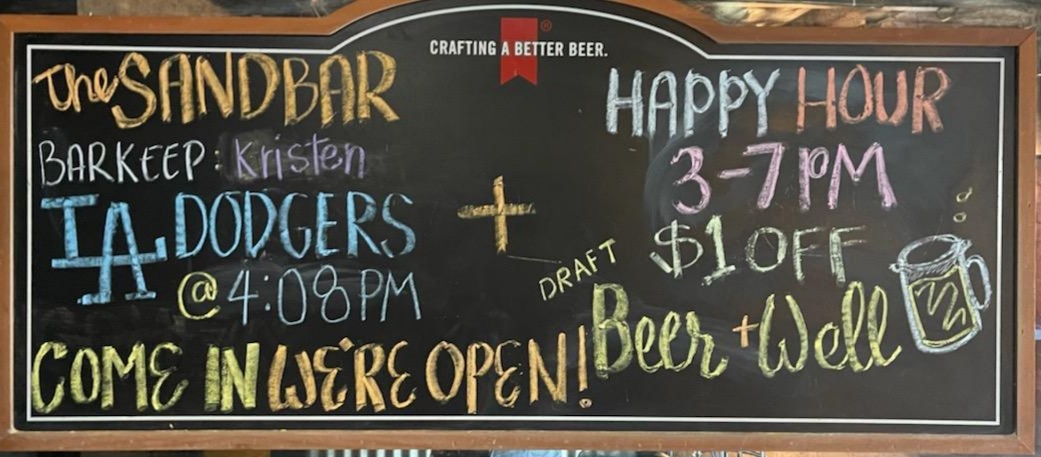 CRAFTING A BETTER BEER.
The SANDBAR
BARKEEP: Kristen
LA DODGERS
@ 4:08PM
COME IN WE'RE OPEN!
+
HAPPY HOUR
3-7PM
$1 OFF
DRAFT
Beer + Well